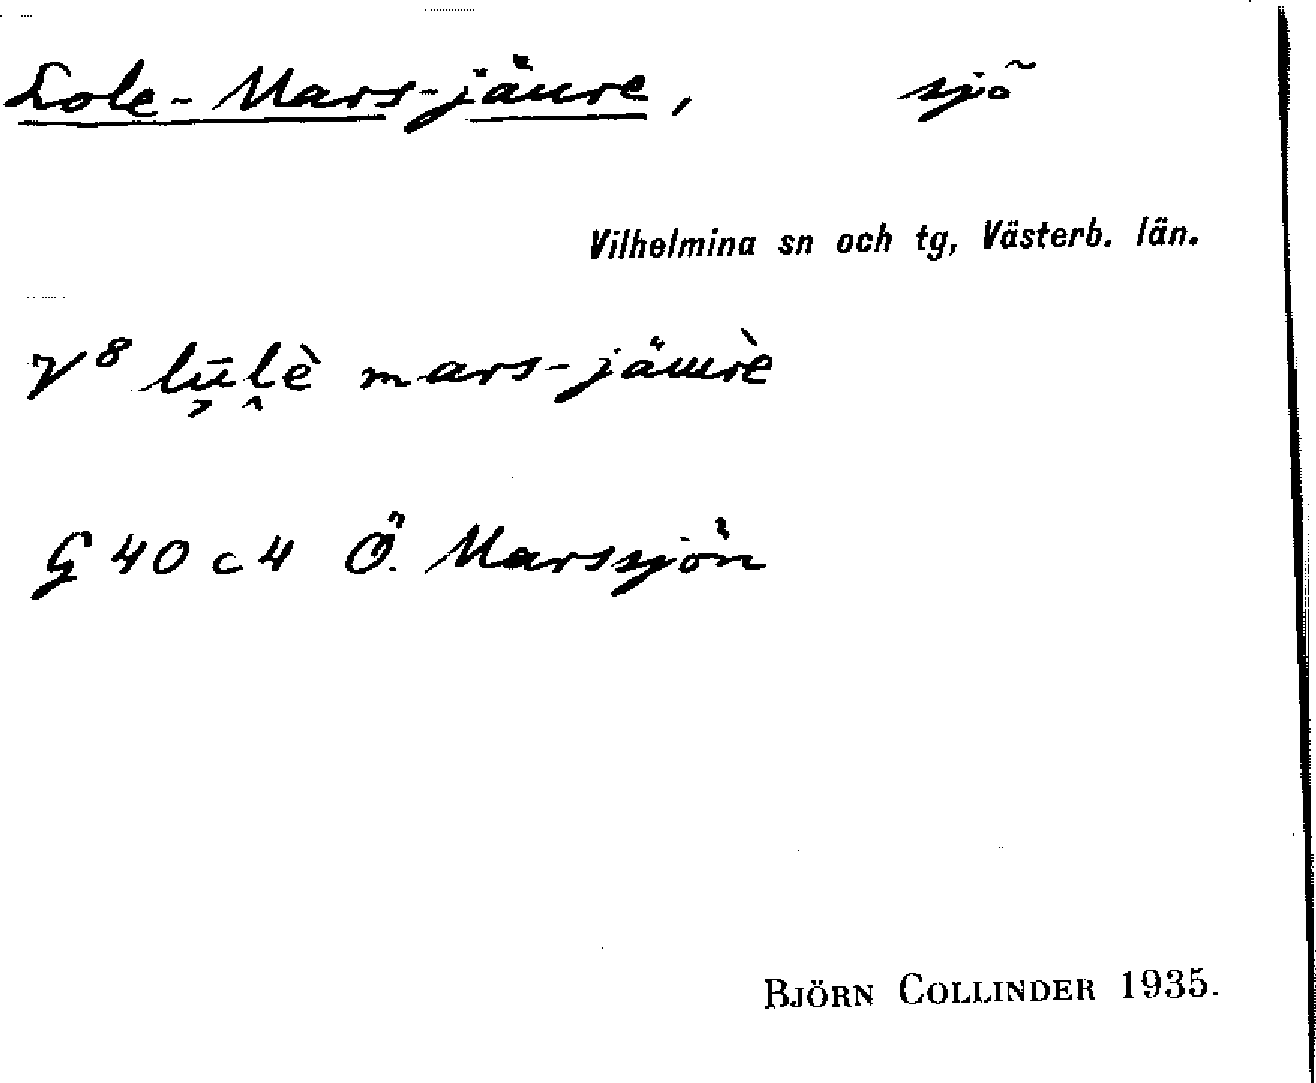 Lole-Mars-jäure, sjö
Vilhelmina sn och tg, Västerb. län.
V⁸ lūlè mars-jäurè
G 40 c 4 Ö. Marssjön
BJÖRN COLLINDER 1935.